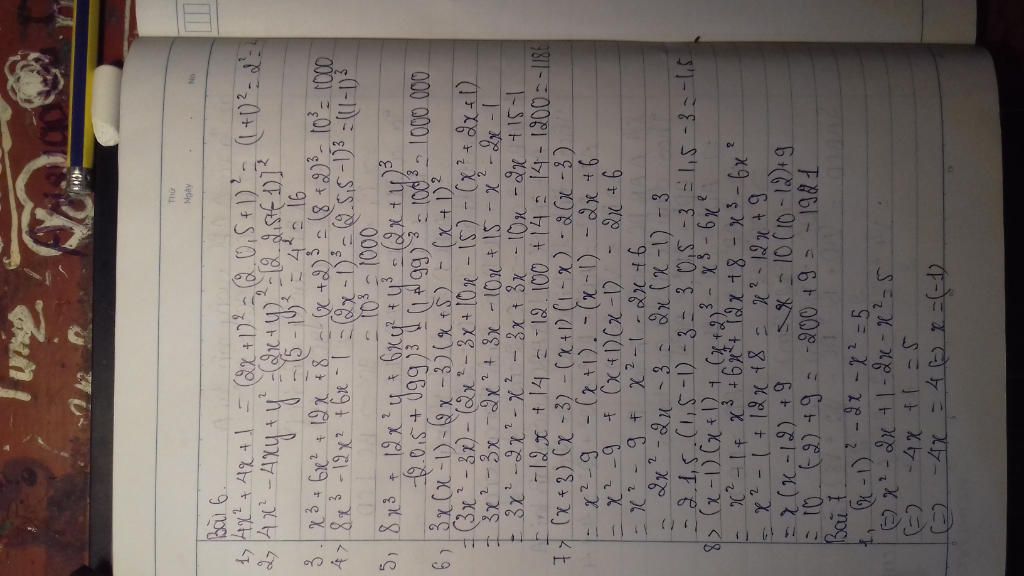 Thứ
Ngày
No.
Bài 6.
1> 4x² + 4x + 1 = (2x+1)² = (2.0,5+1)² = (1+1)² = 2² =
2> 4x² - 4xy + y² = (2x+y)² = [2.2,5+(-1)]²
= (5-1)² = 4² = 16
3. x³ + 6x² + 12x + 8 = (x+2)³ = (8+2)³ = 10³ = 1000
4> 8x³ - 12x² + 6x - 1 = (2x-1)³ = (2.5,5-1)³ = (11-1)³
= 10³ = 1000
5> 8x³ + 12x²y + 6xy² + y³ = (2x+y)³
= (2.0,5+99)³ = (1+99)³ = 100³ = 1000.000
6> 3x(x-1) - (2x-3)(x+5) - (x+1)²
= (3x² - 3x) - (2x² - 3x + 10x - 15) - (x² + 2x + 1)
= 3x² - 3x - 2x² + 3x - 10x + 15 - x² - 2x - 1
= 3x² - 2x² - x² - 3x + 3x - 10x - 2x + 15 - 1
= -12x + 14 = -12.100 + 14 = 14 - 1200 = -1186
7> (x+3)(x-3) - (x+1)(1-x) - 2(x-3)
= x² - 9 - (x+1). -(x-1) - 2x + 6
= x² - 9 + (x+1)(x-1) - 2x + 6
= x² - 9 + x² - 1 - 2x + 6
= 2x² - 2x - 3 = 2x(x-1) - 3
= 2.1,5.(1,5-1) - 3 = 3.0,5 - 3 = 1,5 - 3 = -1,5
8> (x-1)(x+1) + (x+2)³ - x³ - 6x²
= x² - 1 + x³ + 6x² + 12x + 8 - x³ - 6x²
= x² - 1 + 12x + 8 = x² - 12x + 9
= x(x-12) + 9 = x = 10(10-12) + 9
= 10 (-2) + 9 = -200 + 9 = -1921
Bài 7
1, (x-1)² - 2x - x² = 5
(=) x² - 2x + 1 - 2x - x² = 5
(=) -4x + 1 = 5
(=) -4x = 4 (=) x = (-1)